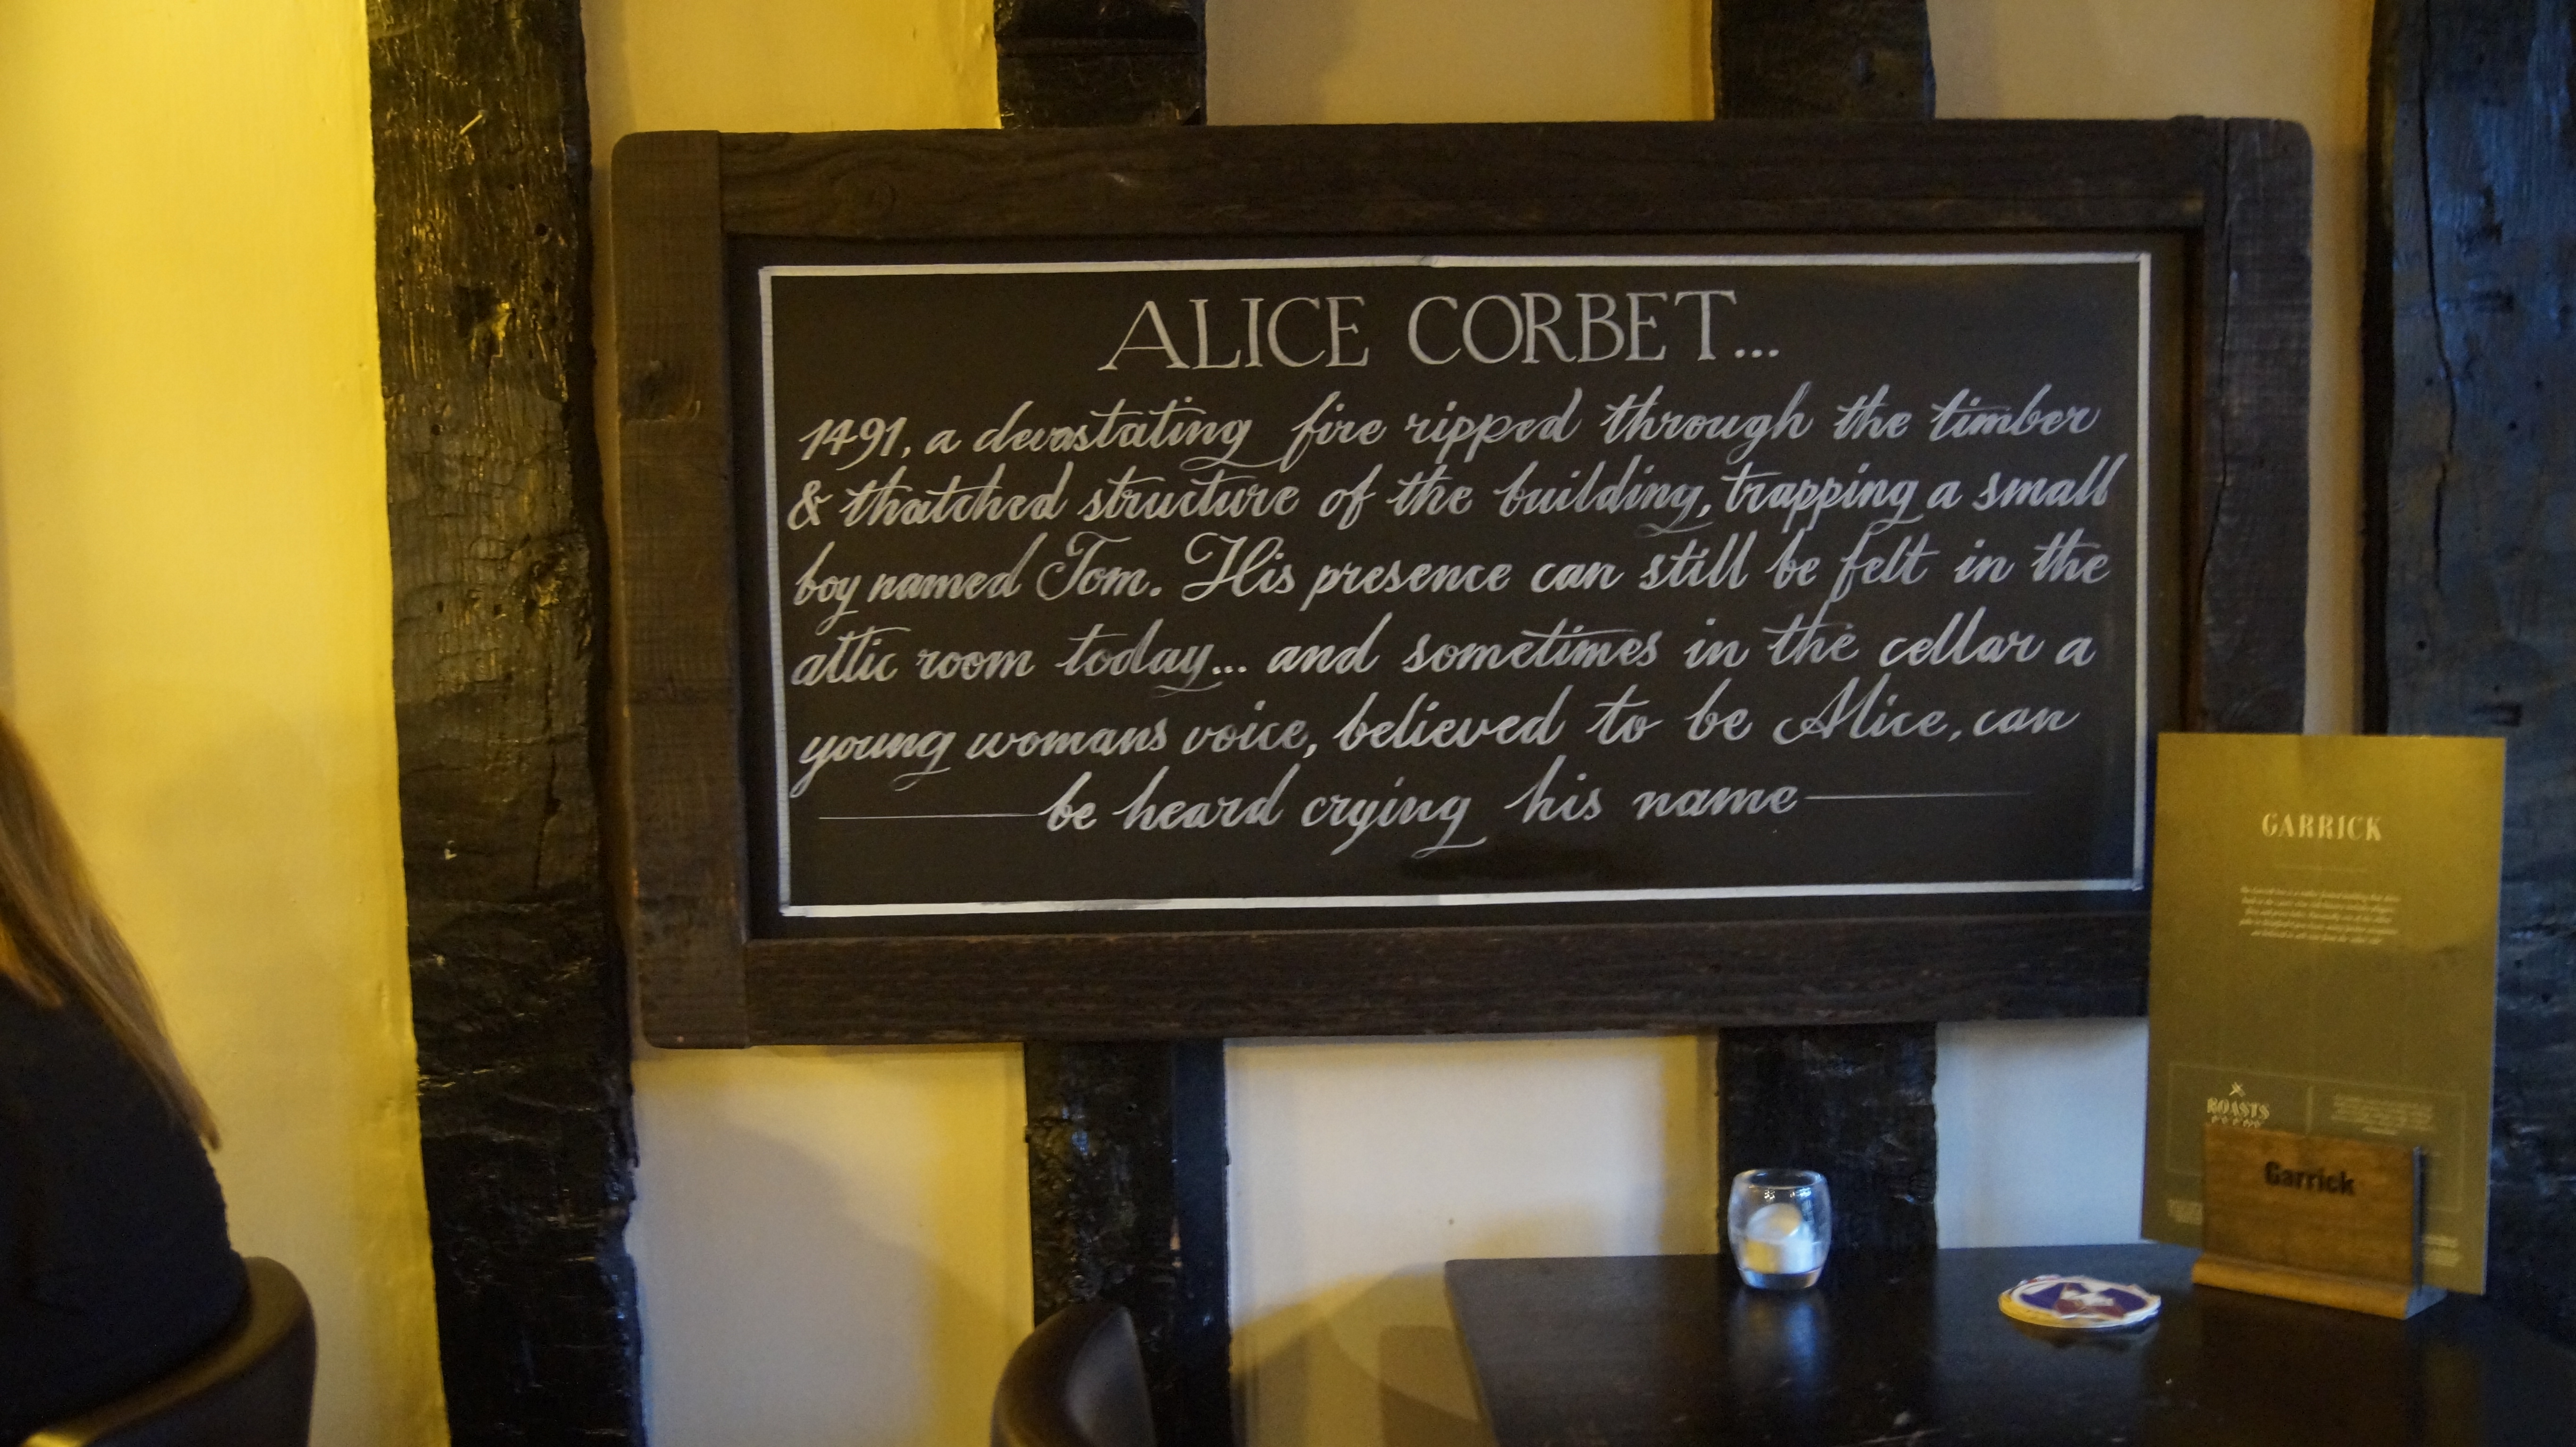 ALICE CORBET...
1491, a devastating fire ripped through the timber
& thatched structure of the building, trapping a small
boy named Tom. His presence can still be felt in the
attic room today... and sometimes in the cellar a
young womans voice, believed to be Alice, can
be heard crying his name
GARRICK
ROASTS
Garrick